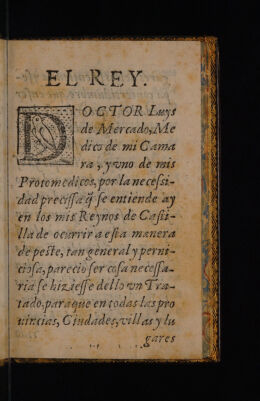 EL REY.
DOCTOR Luys
de Mercado, Me
dico de mi Cama
ra, y vno de mis
Protomedicos, por la necessi-
dad precissa q̃ se entiende ay
en los mis Reynos de Casti-
lla de ocurrir a esta manera
de peste, tan general y perni-
ciosa, parecio ser cosa necessa-
ria se hiziesse dello vn Tra-
tado, para que en todas las pro
uincias, Ciudades, villas y lu
gares